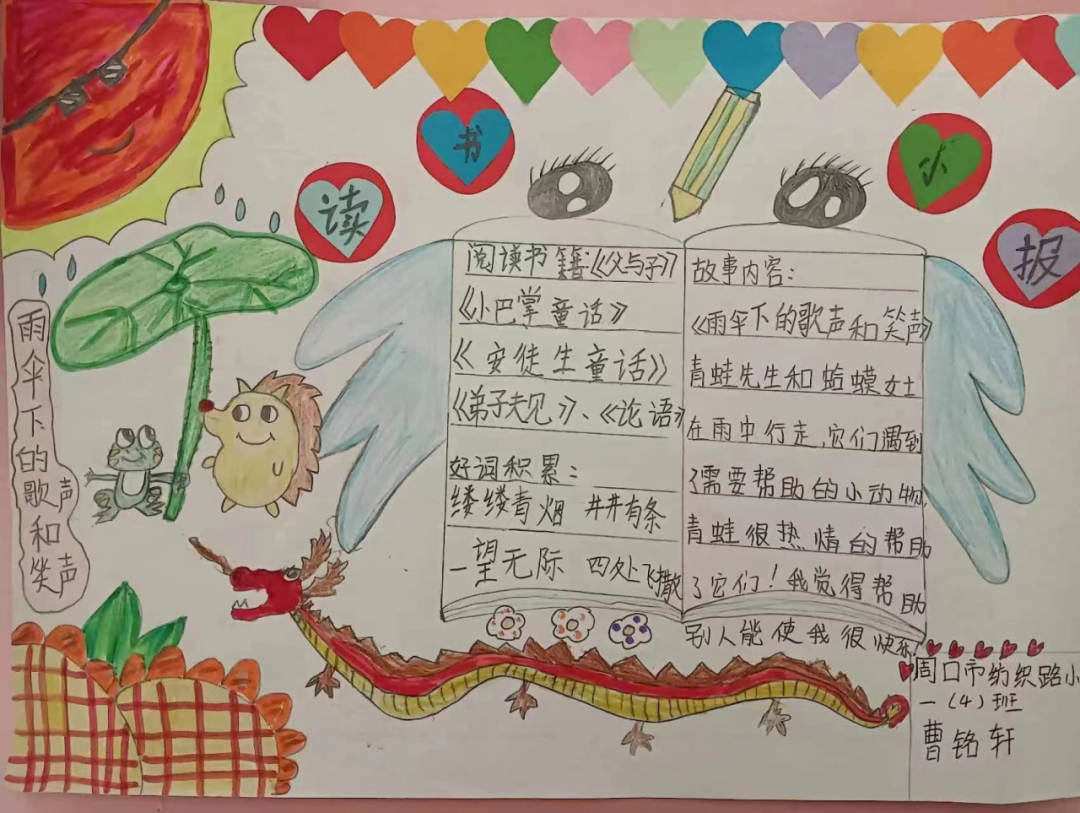 读书小报
雨伞下的歌声和笑声
阅读书籍:《父与子》
《小巴掌童话》
《安徒生童话》
《弟子夫见》、《论语》
好词积累:
缕缕青烟 井井有条
一望无际 四处飞撒
故事内容:
《雨伞下的歌声和笑声》
青蛙先生和蛤蟆女士
在雨中行走,它们遇到
了需要帮助的小动物,
青蛙很热情的帮助
了它们!我觉得帮助
别人能使我很快乐!
周口市纺织路小
一(4)班
曹铭轩